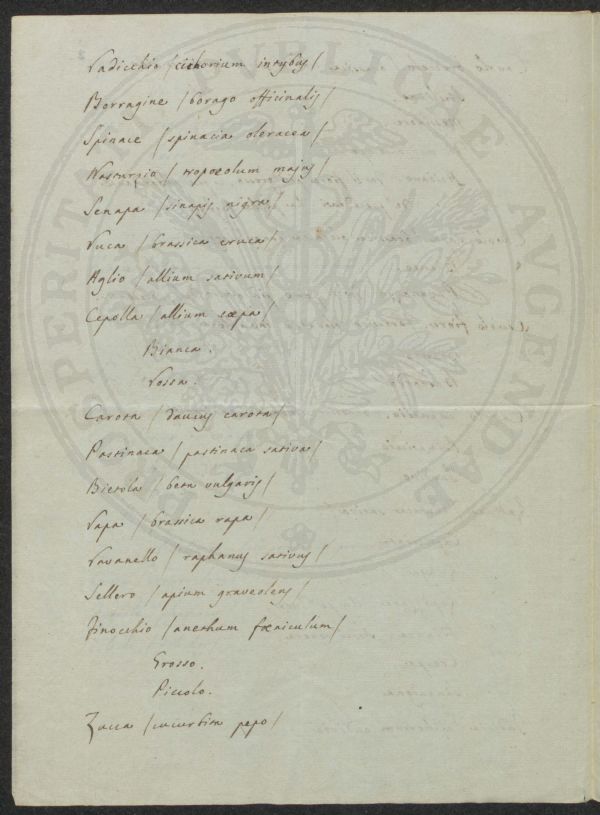 Radicchio /cichorium intybus/
Borragine /borago officinalis/
Spinace /spinacia oleracea/
Nasturzio /tropoeolum majus/
Senapa /sinapis nigra/
Ruca /brassica eruca/
Aglio /allium sativum/
Cepolla /allium cœpa/
Bianca.
Rossa.
Carota /daucus carota/
Pastinaca /pastinaca sativa/
Bietola /beta vulgaris/
Rapa /brassica rapa/
Ravanello /raphanus sativus/
Sellero /apium graveolens/
Finocchio /anethum fœniculum/
Grosso.
Piccolo.
Zucca /cucurbita pepo/